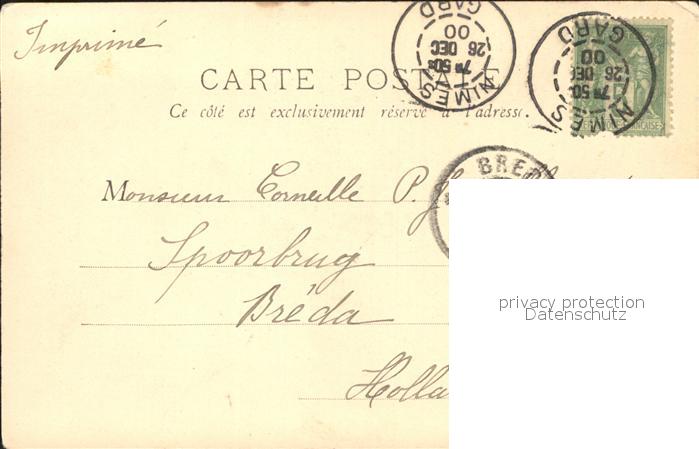 Imprimé
CARTE POSTALE
Ce côté est exclusivement réservé à l'adresse.
NIMES
7ᴱ 50ˢ
26 DEC
00
GARD
NIMES
7ᴱ 50
26 DEC
00
GARD
BRED
Monsieur Corneille P.
Spoorbrug
Bréda
Holla
privacy protection
Datenschutz